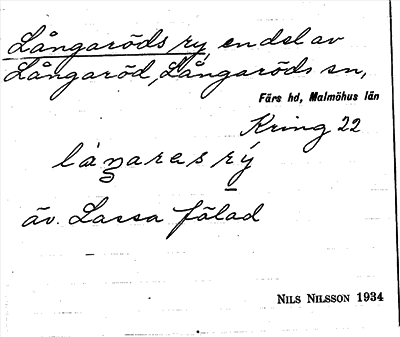 Långaröds ry, en del av
Långaröd, Långaröds sn,
Färs hd, Malmöhus län
Kring 22
låŋaras rý
äv. Lassa fälad
NILS NILSSON 1934